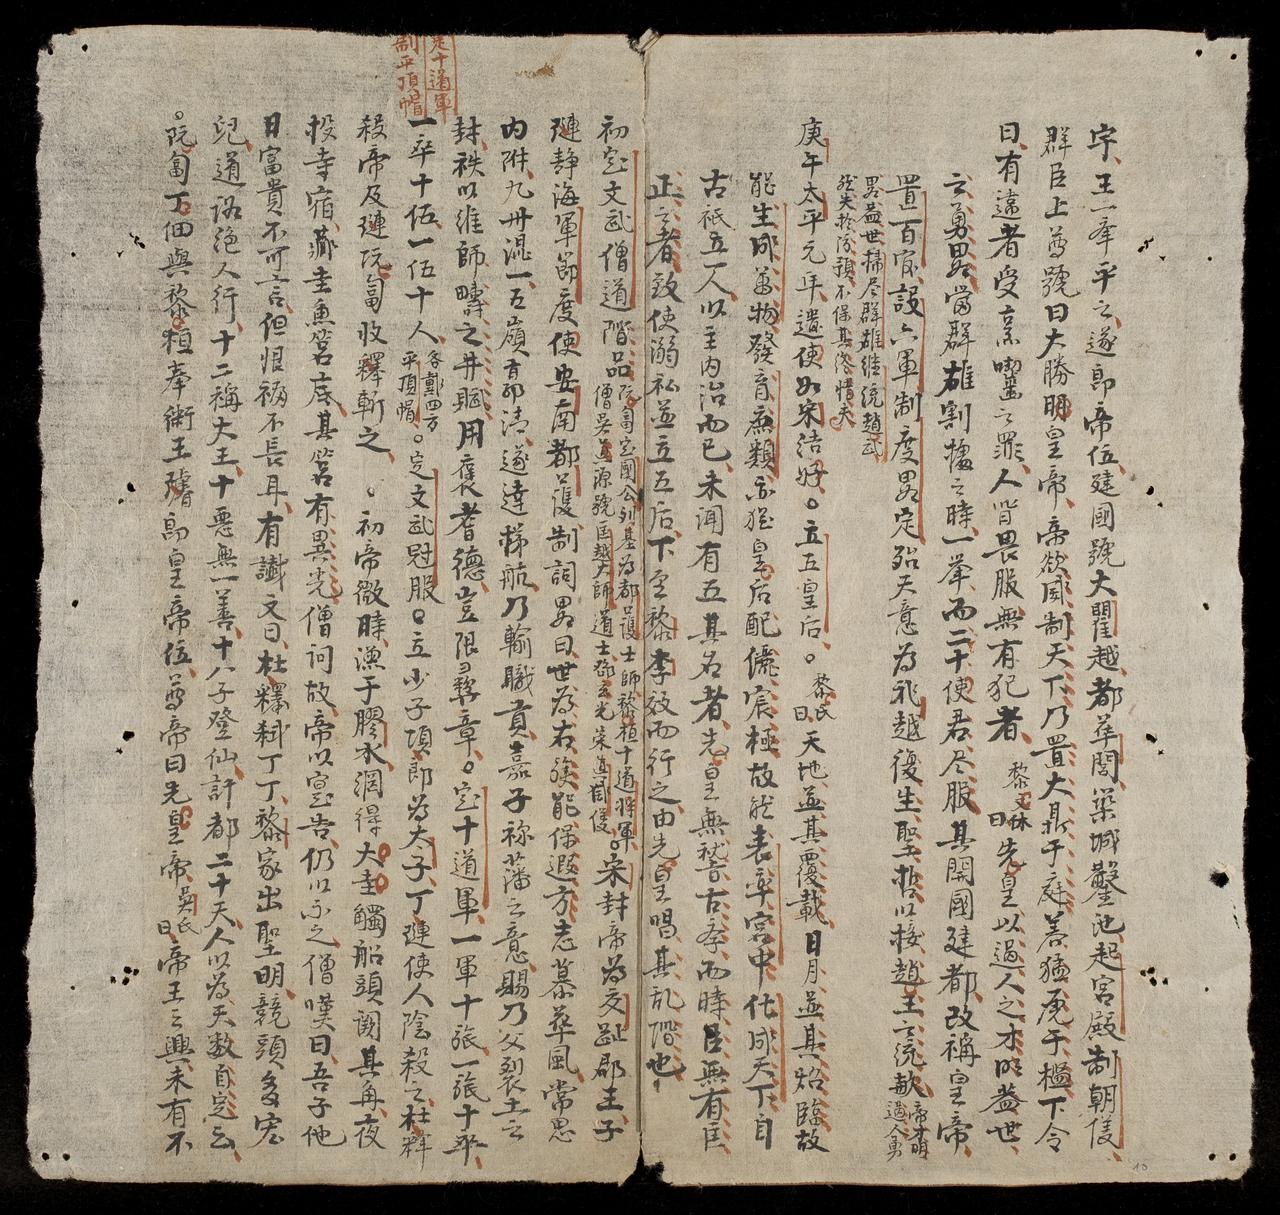 宇王一奉平之遂即帝位建國號大瞿越都華閭築城鑿池起宮殿制朝儀
群臣上尊號曰大勝明皇帝帝欲國制天下乃置大鼎于庭養猛虎于檻下令
曰有違者受烹囓之罪人皆畏服無有犯者黎文休曰先皇以過人之才明盖世
之勇畧當群雄割據之時一举而二十使君尽服其開國建都改稱皇帝
置百官設六軍制度畧定殆天意為我越復生聖哲以接趙王之統歟帝才明過人勇
畧盖世掃尽群雄継統趙武
然失於防預不保其終惜夫
庚午太平元年遣使如宋結好。立五皇后。黎氏曰天地並其覆載日月並其炤臨故
能生成萬物發育庶類亦猶皇后配儷宸極故能表率宮中化成天下自
古祇立一人以主内治而已未聞有五其名者先皇無稽古孝而時臣無有匡
正之者致使溺私並立五后下至黎李效而行之由先皇唱其乱階也
初定文武僧道階品阮匐定國公刘基為都護士師黎桓十道将軍
僧吳真源號匡越大師道士鄧玄光崇真威儀。宋封帝為交趾郡王子
璉静海軍節度使安南都護制詞畧曰世為右族能保遐方志慕華風常思
内附九州混一五嶺有郡清遂達梯航乃輸職貢嘉子称藩之意賜乃父裂土之
封秩以維師疇之井賦用褒耆德豈限彛章。定十道軍一軍十旅一旅十卒
一卒十伍一伍十人各戴四方平頂帽。定文武冠服。立少子項郎為太子丁璉使人陰殺之杜釋
殺帝及璉阮匐收釋斬之。初帝微時漁于膠水網得大圭觸船頭闕其角夜
投寺宿藏圭魚筥底其筥有異光僧詞故帝以寔告仍以示之僧嘆曰吾子他
日富貴不可言但恨福不長耳有讖文曰杜釋弒丁丁黎家出聖明競頭多宏
兒道路絶人行十二稱大王十惡無一善十八子登仙計都二十天人以為天数自定云
。阮匐丁佃與黎桓奉衛王璿即皇帝位尊帝曰先皇帝吳氏曰帝王之興未有不
定十道軍
制平頂帽
10